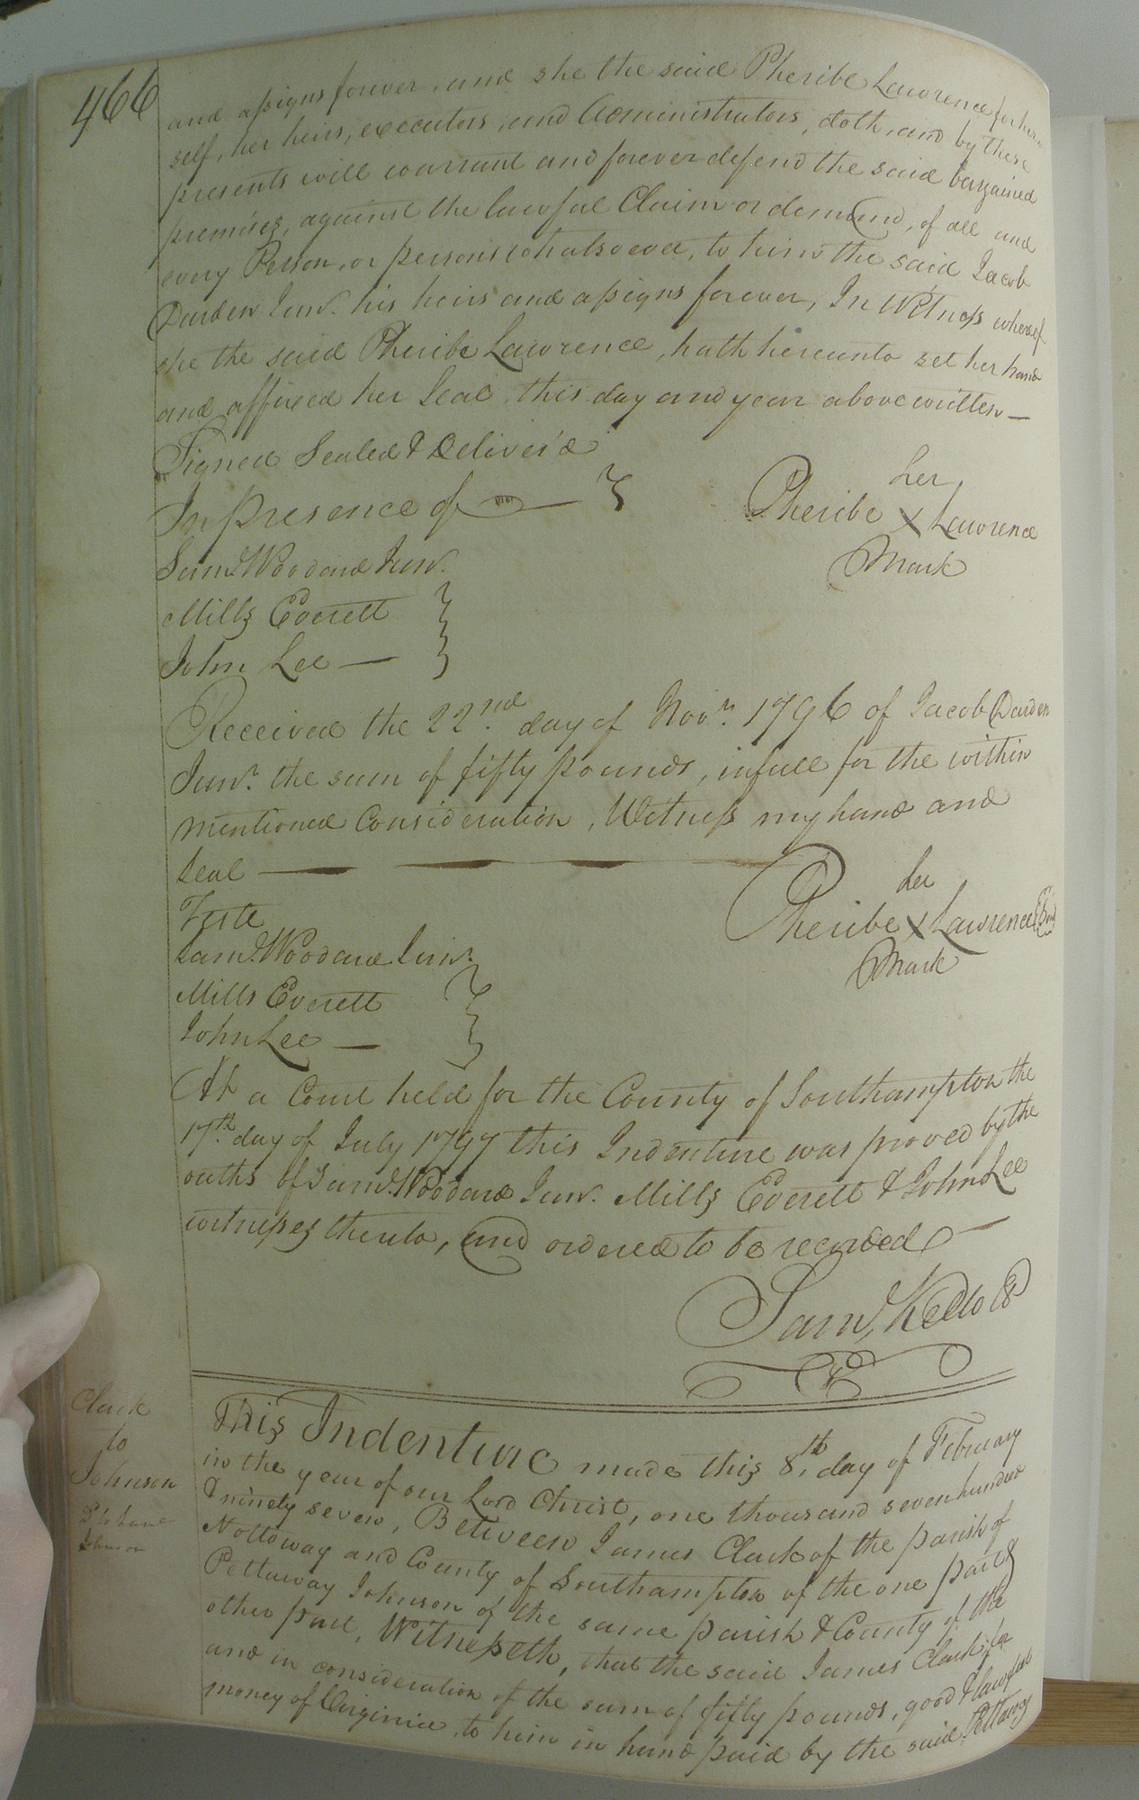 466
and assigns forever, and she the said Pheribe Lawrence for her
self, her heirs, executors, and Administrators, doth, and by these
presents will warrant and forever defend the said bargained
premises, against the lawful Claim or demand, of all and
every Person, or persons whatsoever, to him the said Jacob
Darden Junr. his heirs and assigns forever, In Witness whereof
she the said Pheribe Lawrence, hath hereunto set her hand
and affixed her Seal this day and year above written —
Signed Sealed & Deliver'd
In presence of —
Saml. Woodard Junr.
Mills Everett
John Lee —
her
Pheribe X Lawrence
Mark
Received the 22nd. day of Novr. 1796 of Jacob Darden
Junr. the sum of fifty pounds, in full for the within
mentioned Consideration, Witness my hand and
Seal —
Teste
Saml. Woodard Junr.
Mills Everett
John Lee —
her
Pheribe X Lawrence
Mark
At a Court held for the County of Southampton the
17th. day of July 1797 this Indenture was proved by the
oaths of Saml. Woodard Junr. Mills Everett & John Lee
witnesses thereto, and ordered to be recorded —
Saml. Kello
Clark
to
Johnson
This Indenture made this 8th. day of February
in the year of our Lord Christ, one thousand seven hundred
& ninety seven, Between James Clark of the parish of
Nottoway and County of Southampton of the one part &
Pettaway Johnson of the same parish & County of the
other part, Witnesseth, that the said James Clark for
and in consideration of the sum of fifty pounds, good & lawful
money of Virginia, to him in hand paid by the said Pettaway